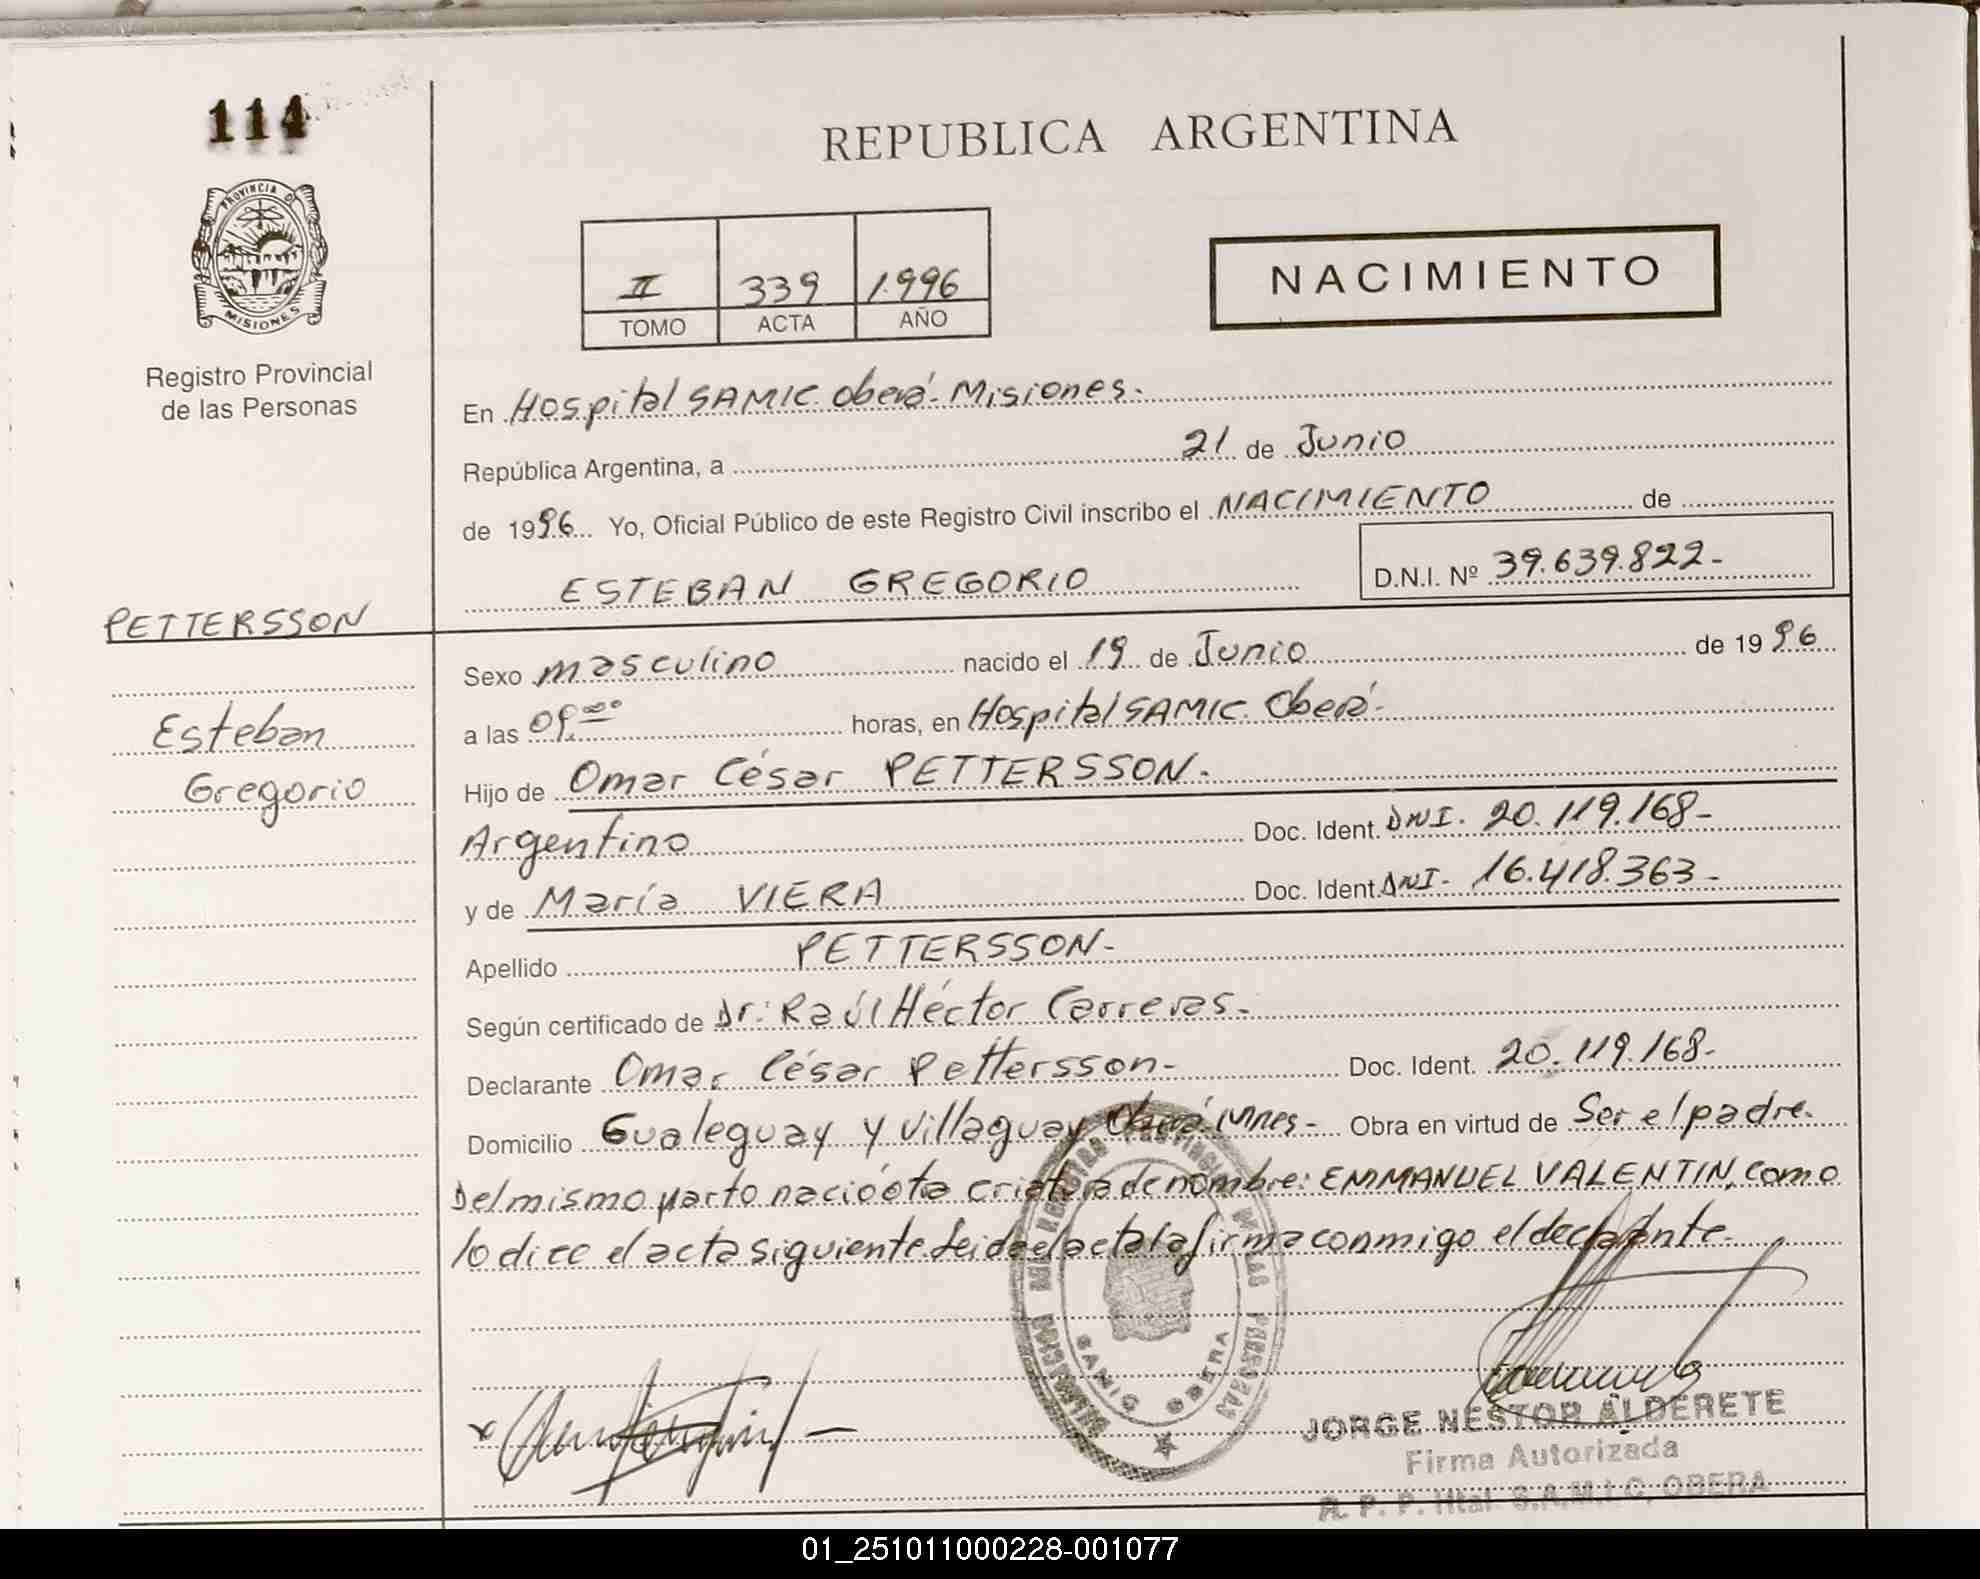 114
REPUBLICA ARGENTINA
PROVINCIA D
MISIONES
Registro Provincial
de las Personas
II 339 1.996
TOMO ACTA AÑO
NACIMIENTO
En Hospital SAMIC. Oberá - Misiones.
República Argentina, a 21 de Junio
de 1996 Yo, Oficial Público de este Registro Civil inscribo el NACIMIENTO de
ESTEBAN GREGORIO D.N.I. Nº 39.639.822-
PETTERSSON
Esteban
Gregorio
Sexo masculino nacido el 19 de Junio de 1996
a las 09,00 horas, en Hospital SAMIC. Oberá-
Hijo de Omar César PETTERSSON.
Argentino Doc. Ident. DNI. 20.119.168-
y de María VIERA Doc. Ident. DNI- 16.418.363-
Apellido PETTERSSON-
Según certificado de Dr: Raúl Héctor Carreras.-
Declarante Omar César Pettersson- Doc. Ident. 20.119.168-
Domicilio Gualeguay y Villaguay Oberá Mnes- Obra en virtud de Ser el padre.
Del mismo parto nació ota criatura de nombre: EMMANUEL VALENTIN, como
lo dice el acta siguiente leida el acta la firma conmigo el declarante.
DELEGACION DEL REGISTRO PROVINCIAL DE LAS PERSONAS
SAMIC OBERA
JORGE NESTOR ALDERETE
Firma Autorizada
R. P. P. Htal S.A.M.I.C, OBERA
01_251011000228-001077